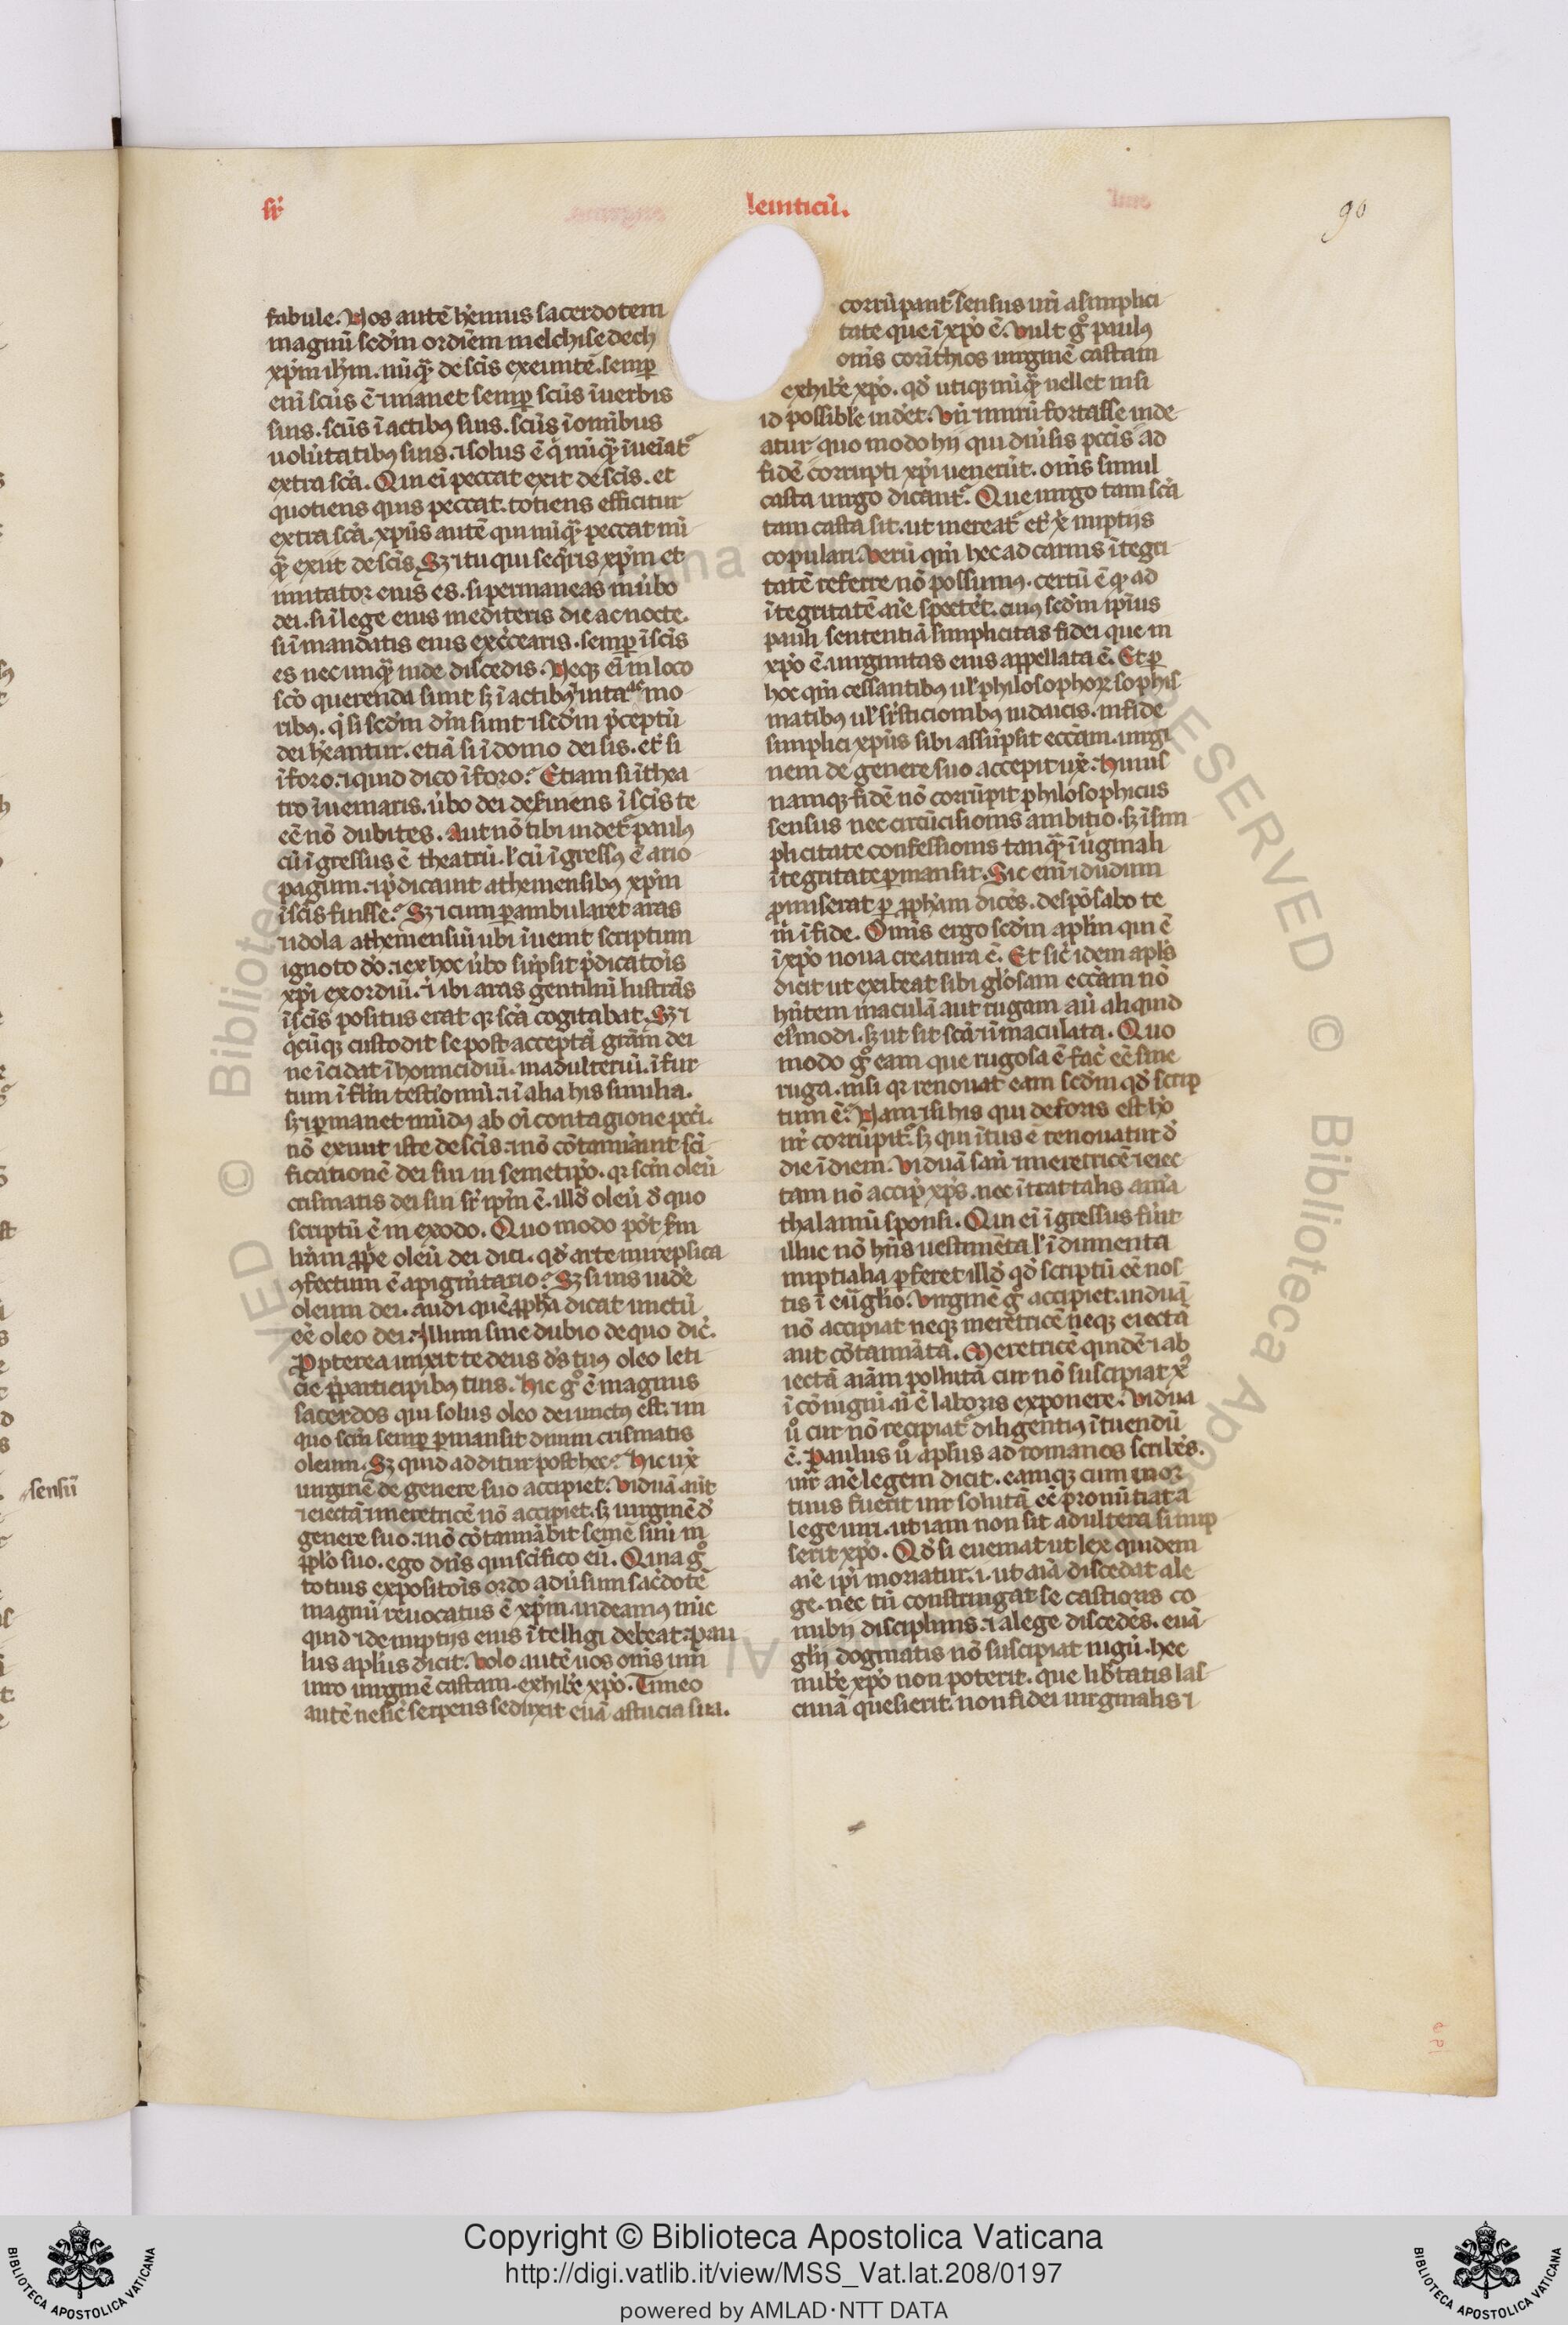 sr̄
leuiticū.
90
fabule. Nos autē hēmus sacerdotem
magnū scd̄m ordinem melchisedech
xp̄m ih̄m. nūq̄ de scīs exeuntē. semꝑ
enī scūs ē ⁊ manet semꝑ scūs ī uerbis
suis. scūs ī actibꝰ suis. scūs ī omībus
uolūtatibꝰ suis. ⁊ solus ē q̄ nūq̄ īueīat᷑
extra scā. Qui eī peccat exit de scīs. et
quotiens quis peccat. totiens efficitur
extra scā. xp̄us autē qui nūq̄ peccat nū
q̄ exiit de scīs. Sꝫ ⁊ tu qui seq̄ris xp̄m et
imitator eius es. si permaneas in ūbo
dei. si ī lege eius mediteris die ac nocte.
si ī mandatis eius exerceāris. semꝑ ī scīs
es nec unq̄ inde discedis. Neqꝫ eī in loco
scō querenda sunt sꝫ ī actibꝰ ⁊ uita ac mo
ribꝰ. q̄ si scd̄m dm̄ sunt ⁊ scd̄m p̄ceptū
dei hēantur. etiā si ī domo dei sis. et si
ī foro. ⁊ quid dico ī foro? Etiam si ī thea
tro īueniaris. ūbo dei deseruiens ī scīs te
eē nō dubites. Aut nō tibi uidet᷑ paulꝰ
cū īgressus ē theatrū. ł cū īgressꝰ ē ario
pagum. ⁊ p̄dicauit atheniensibꝰ xp̄m
ī scīs fuisse? Sꝫ ⁊ cum ꝑambularet aras
⁊ idola atheniensiū ubi īuenit scriptum
ignoto dō. ⁊ ex hoc ūbo sūpsit p̄dicatiōis
xp̄i exordiū. ⁊ ibi aras gentiliū lustrās
ī scīs positus erat qꝛ scā cogitabat. Sꝫ ⁊
q̄cūqꝫ custodit se post acceptā grām dei
ne īcidat ī homicidiū. in adulteriū. ī fur
tum ī flm̄ testīoniū. ⁊ ī alia his similia.
sꝫ ꝑmanet mūdꝰ ab oī contagione pccī.
nō exiuit iste de scīs. ⁊ nō cōtaminauit scī
ficationē dei sui in semetip̄o. qꝛ scm̄ oleū
crismatis dei sui sr̄ ip̄m ē. illd̄ oleū d̄ quo
scriptū ē in exodo. Quo modo pōt scd̄m
lrām ꝓprie oleū dei dici. qd̄ arte mirepsica
ꝯfectum ē a pigmētario? Sꝫ si uis uidē
oleum dei. audi quē ꝓpha dicat unctū
eē oleo dei. Illum sine dubio de quo dic̄.
Propterea unxit te deus ds̄ tuꝰ oleo leti
cie p̄ participibꝰ tuis. Hic gͦ ē magnus
sacerdos qui solus oleo dei unctꝰ est. ⁊ in
quo scm̄ semꝑ ꝑmansit diuini crismatis
oleum. Sꝫ quid additur post hec? Hic ux̄
uirginē de genere suo accipiet. Viduā aūt
⁊ eiectā ⁊ meretricē nō accipiet. sꝫ uirginē d̄
genere suo. ⁊ nō cōtaminābit semē suū in
pp̄lo suo. ego dn̄s qui scīfico eū. Quia gͦ
totius expositiōis ordo ad ūsum sacerdotē
magnū reuocatus ē xp̄m. uideamꝰ nūc
quid ⁊ de nuptijs eius ītelligi debeat. pau
lus apl̄us dicit. Volo autē uos om̄s uni
uiro uirginē castam. exhibē xp̄o. Timeo
autē ne sic̄ serpens seduxit euā astucia sua.
sensū
corrūpant᷑ sensus ur̄i a simplici
tate que ī xp̄o ē. Vult gͦ paulꝰ
om̄s corīthios uirginē castam
exhibē xp̄o. qd̄ utiqꝫ nūq̄ uellet nisi
id possibile uidet᷑. Vn̄ mirū fortasse uide
atur quo modo hij qui diūsis pccīs ad
fidē corrupti xp̄i uenerūt. om̄s simul
casta uirgo dicant᷑. Que uirgo tam scā
tam casta sit. ut mereat᷑ et x̄i nuptijs
copulari. Verū qm̄ hec ad carnis ītegri
tatē referre nō possumꝰ. certū ē qꝫ ad
ītegritatē aīe spectet. cuiꝰ scd̄m ip̄ius
pauli sententiā simplicitas fidei que in
xp̄o ē. uirginitas eius appellata ē. Et ꝑ
hoc qm̄ cessantibꝰ ul̄ philosophoꝝ sophis
matibꝰ ul̄ sr̄sticionibꝰ iudaicis. in fide
simplici xp̄us sibi assūpsit eccām. uirgi
nem de genere suo accepit ux̄. Huius
namqꝫ fidē nō corrūpit philosophicus
sensus nec circūcisionis ambitio. sꝫ ī sim
plicitate confessionis tanq̄ ī ūginali
ītegritate ꝑmansit. Sic enī ⁊ dudum
ꝓmiserat ꝑ ꝓpham dicēs. despōsabo te
m̄ ī fide. Omīs ergo scd̄m apl̄m qui ē
ī xp̄o noua creatura ē. Et sic̄ idem apl̄s
dicit ut exibeat sibi gl̄osam eccām nō
hn̄tem maculā aut rugam aū aliquid
eiꝰmodi. sꝫ ut sit scā ⁊ īmaculata. Quo
modo gͦ eam que rugosa ē fac̄ eē sine
ruga. nisi qꝛ renouat eam scd̄m qd̄ scrip
tum ē. Nam ⁊ si his qui deforis est hō
nr̄ corrūpit᷑. sꝫ qui ītus ē renouatur d̄
die ī diem. Viduā san̄ ⁊ meretricē ⁊ eiec
tam nō accip̄ xp̄s. nec ītrat talis aīa
thalamū sponsi. Qui eī īgressus fūit
illuc nō hn̄s uestimēta ł īdumenta
nuptialia ꝑferet illd̄ qd̄ scriptū eē nos
tis ī eūglio. Virginē gͦ accipiet. uiduā
nō accipiat neqꝫ meretricē neqꝫ eiectā
aut cōtaminātā. Meretricē quidē ⁊ ab
iectā aīam pollutā cur nō suscipiat xͦ
ī cōiugiū. nō ē laboris exponere. Vidua
ūͦ cur nō recipiat᷑ diligentiꝰ ītuendū
ē. Paulus ūͦ apl̄us ad romanos scribēs.
uir aīe legem dicit. eamqꝫ cum mor
tuus fuerit uir solutā eē pronūtiat a
lege uiri. ut iam non sit adultera si nup
serit xp̄o. Qd̄ si eueniat ut lex quidem
aīe ip̄i moriatur. i. ut aīa discedat a le
ge. nec tn̄ constringat se castioris co
nubij disciplinis. ⁊ a lege discedēs. euā
glij dogmatis nō suscipiat iugū. hec
nubē xp̄o non poterit. que lib̄tatis las
ciuiā quesierit. non fidei uirginalis ⁊
Copyright © Biblioteca Apostolica Vaticana
http://digi.vatlib.it/view/MSS_Vat.lat.208/0197
powered by AMLAD·NTT DATA
BIBLIOTECA APOSTOLICA VATICANA
BIBLIOTECA APOSTOLICA VATICANA